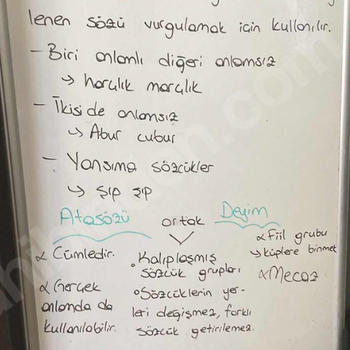 lenen sözü vurgulamak için kullanılır.
- Biri anlamlı diğeri anlamsız
↳ harçlık marçlık
- İkiside anlamsız
↳ Abur cubur
- Yansıma sözcükler
↳ şıp şıp
Atasözü ortak Deyim
∝ Cümledir.
∝ Gerçek
anlamda da
kullanılabilir.
• Kalıplaşmış
sözcük grupları
• Sözcüklerin yer-
leri değişmez, farklı
sözcük getirilemez.
∝ Fiil grubu
↳ küplere binmek
∝ Mecaz